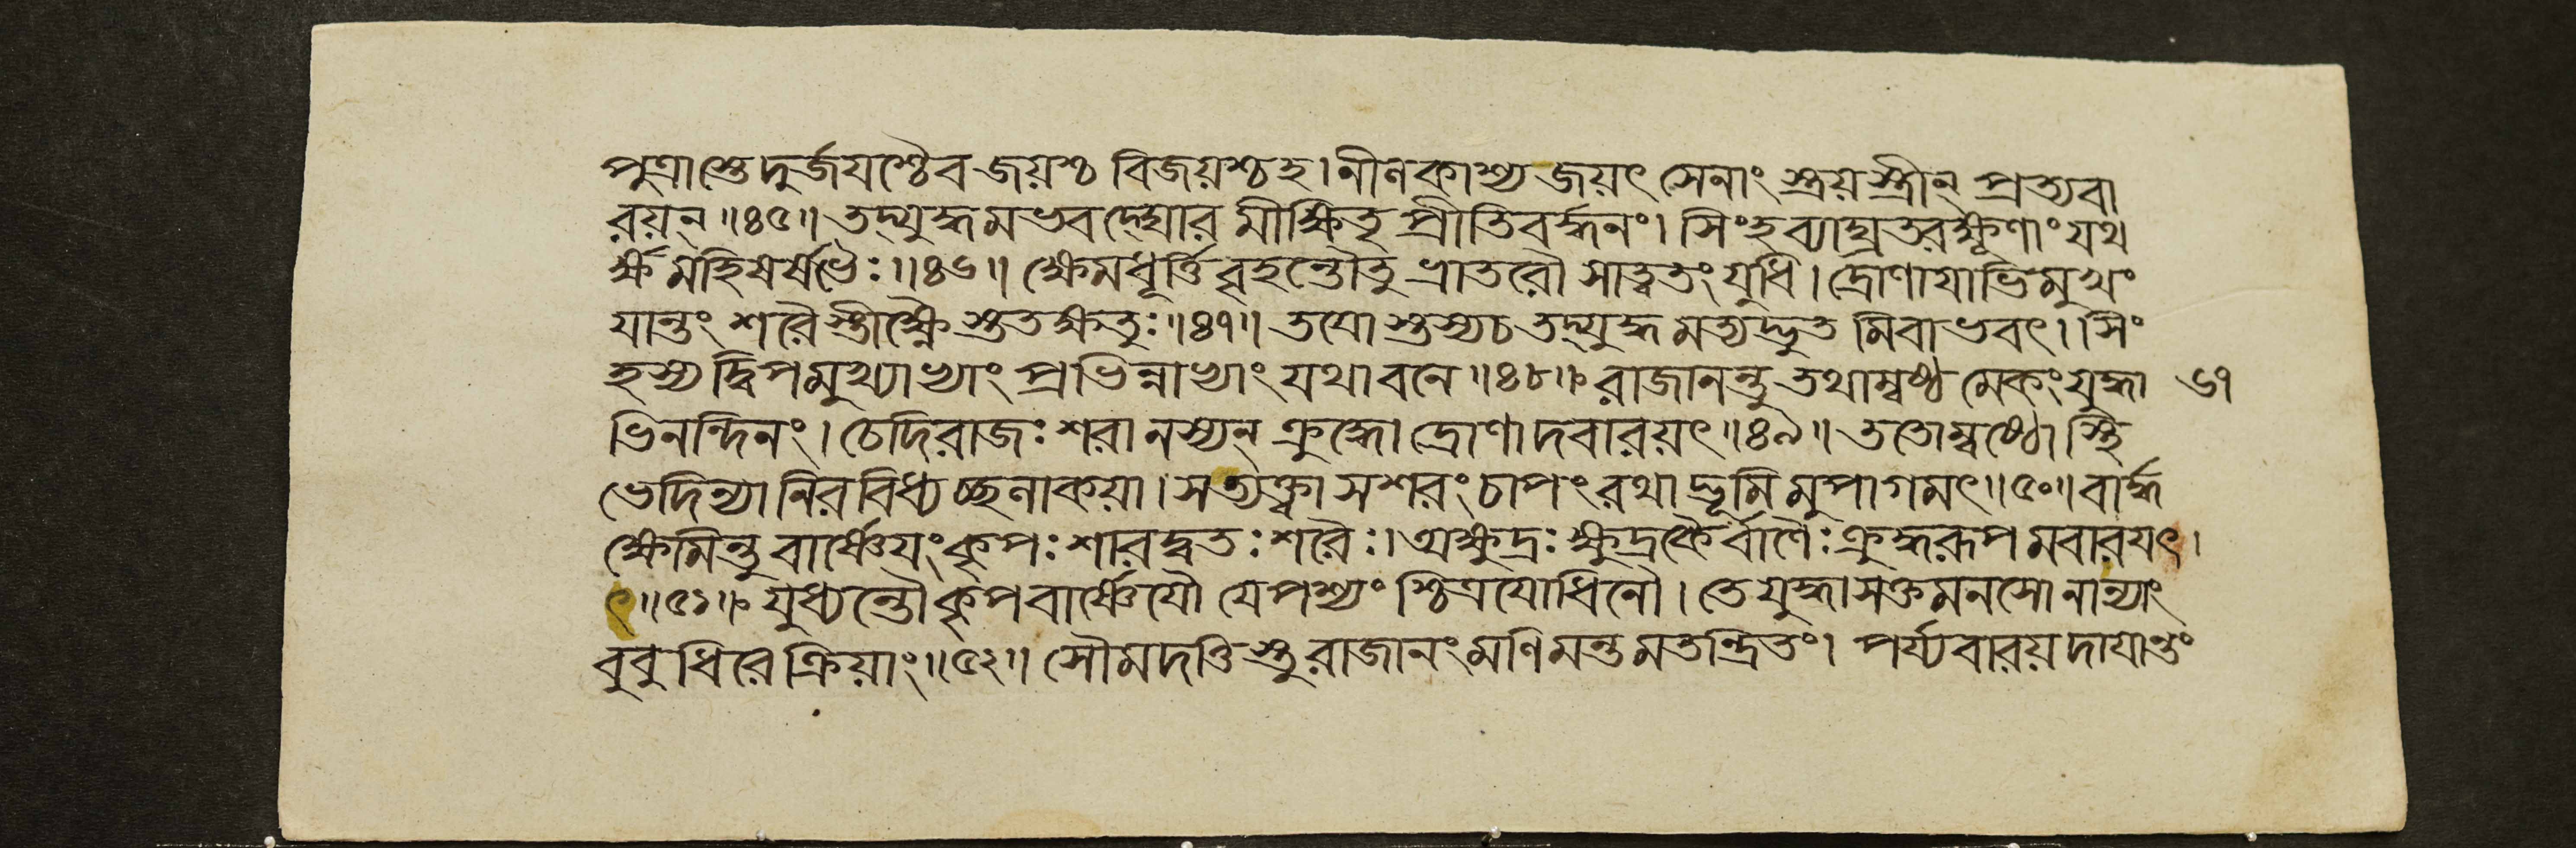 পুত্রাস্তে দুর্জযশ্চৈব জয়শ্চ বিজয়শ্চহ। নীনকাশ্য জয়ৎ সেনাং স্ত্রয়স্ত্রীন্ প্রত্যবা
রয়ন্॥৪৫॥ তদ্যুদ্ধমভবদ্ঘোর মীক্ষিতৃ প্রীতিবর্দ্ধনং। সিংহব্যাঘ্রতরক্ষূণাং যথ
র্ক্ষ মহিষর্ষভৈঃ॥৪৬॥ ক্ষেমধূর্ত্তি বৃহন্তৌতু ভ্রাতরৌ সাত্বতং যুধি। দ্রোণাযাভিমুখং
যান্তং শরৈস্তীক্ষ্ণৈ স্তুতক্ষতুঃ॥৪৭॥ তযো স্তস্যচ তদ্যুদ্ধ মত্যদ্ভুত মিবাভবৎ। সিং
হস্য দ্বিপমুখ্যাভ্যাং প্রভিন্নাভ্যাং যথা বনে॥৪৮॥ রাজানন্তু তথাম্বষ্ঠ মেকং যুদ্ধা ৬৭
ভিনন্দিনং। চেদিরাজঃ শরা নস্যন্ ক্রুদ্ধো দ্রোণাদবারয়ৎ॥৪৯॥ ততোম্বষ্ঠো স্থি
ভেদিন্যা নিরবিধ্যচ্ছনাকয়া। সত্যক্ত্বা সশরং চাপং রথাদ্ভূমি মুপাগমৎ॥৫০॥ বার্দ্ধ
ক্ষেমিন্তু বার্ষ্ণেযং কৃপঃ শারদ্বতঃ শরৈঃ। অক্ষুদ্রঃ ক্ষুদ্রকৈর্বাণৈঃ ক্রুদ্ধরূপ মবারযৎ।
ৎ॥৫১॥ যুধ্যন্তৌ কৃপবার্ষ্ণেযৌ যেপশ্যং শ্চিত্রযোধিনৌ। তে যুদ্ধাসক্তমনসো নান্যাং
বুবুধিরে ক্রিয়াং॥৫২॥ সৌমদত্তি স্তু রাজানং মণিমন্ত মতন্দ্রিতং। পর্য্যবারয় দাযান্তং